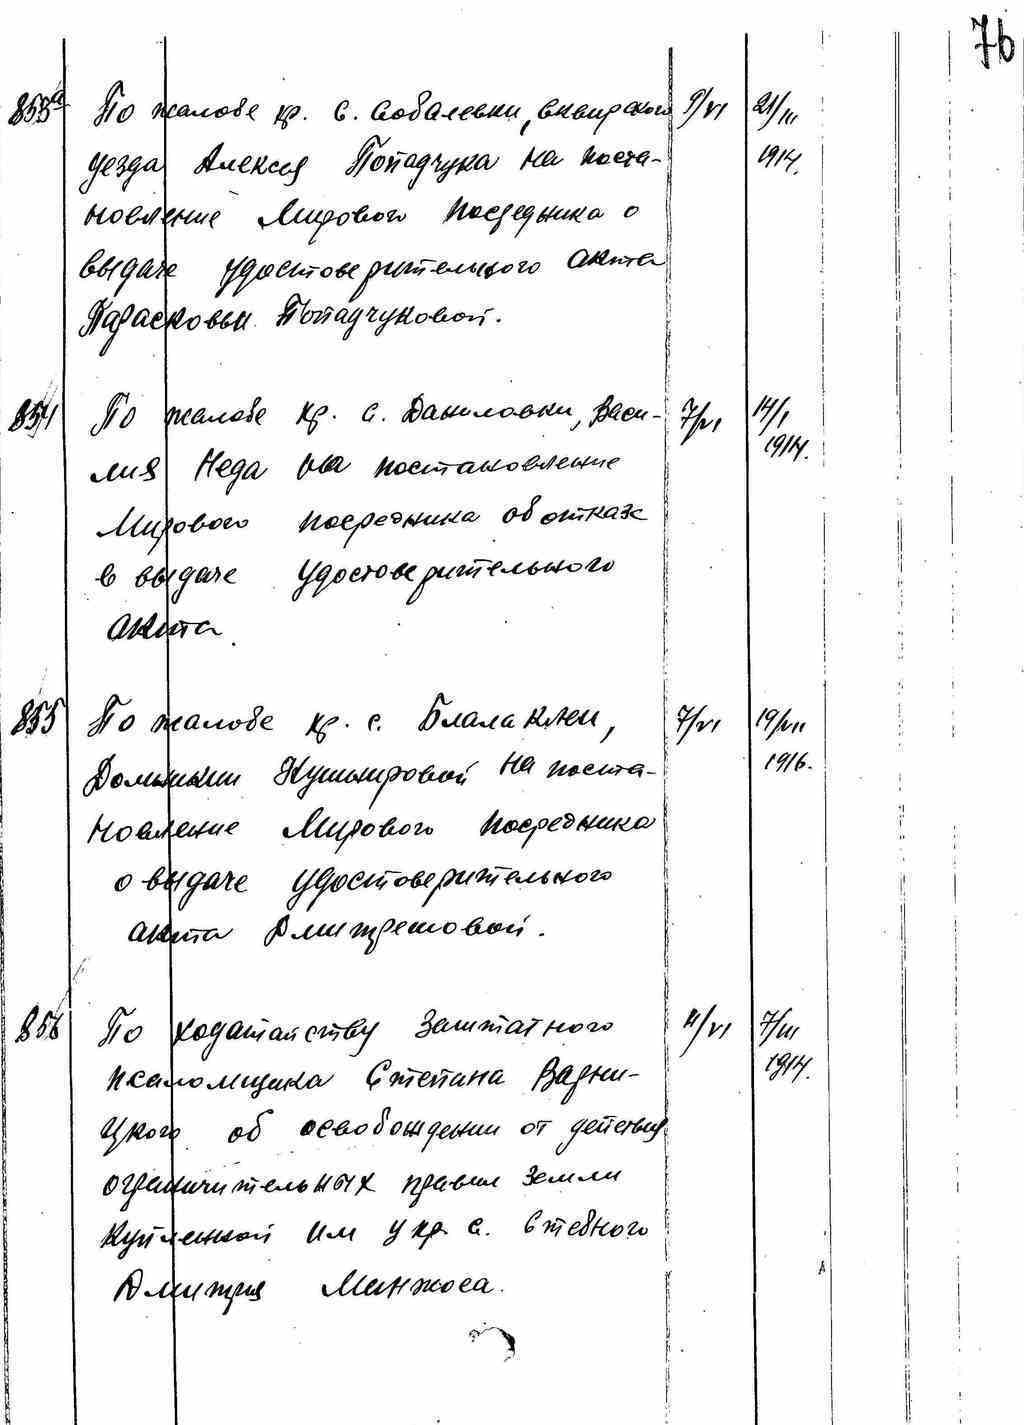 76
853а По жалобе кр. с. Соболевки, Сквирского 9/VI 21/III
уезда Алексея Попадчука на поста- 1914.
новление Мирового Посредника о
выдаче удостоверительного акта
Парасковьи Попадчуковой.
854 По жалобе кр. с. Даниловки, Васи- 7/VI 14/I
лия Неда на постановление 1914.
Мирового посредника об отказе
в выдаче удостоверительного
акта.
855 По жалобе кр. с. Блалаклеи, 7/VI 19/VII
Домникии Кушнировой на поста- 1916.
новление Мирового Посредника
о выдаче удостоверительного
акта Дмитретовой.
856 По ходатайству Заштатного 11/VI 7/III
псаломщика Степана Вадни- 1914.
цкого об освобождении от действия
ограничительных правил земли
купленной им у кр. с. Стебного
Дмитрия Манжоса.